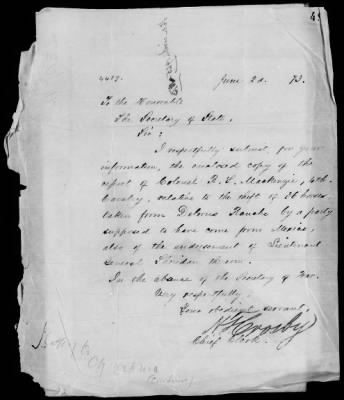 4419. June 2d. 73.
To the Honorable
The Secretary of State,
Sir:
I respectfully submit, for your
information, the enclosed copy of the
report of Colonel R. S. Mackenzie, 4th
Cavalry, relative to the theft of 36 horses
taken from Delores Ranche by a party
supposed to have come from Mexico;
also of the indorsement of Lieutenant
General Sheridan thereon.
In the absence of the Secretary of War.
Very respectfully,
Your obedient servant,
H Crosby
Chief Clerk.